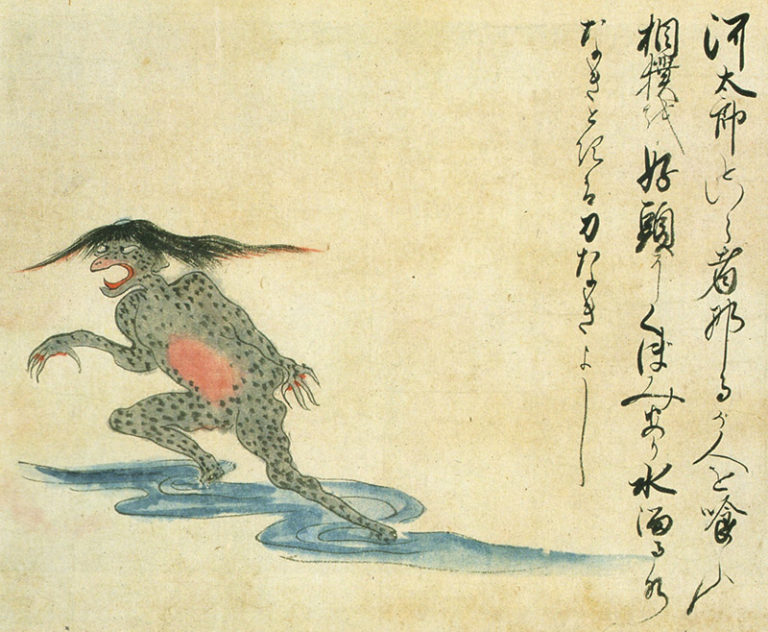 河太郎といふ者なるが人を喰ふ
相撲を好頭にくぼみあり水溜る水
なきときは力なきよし